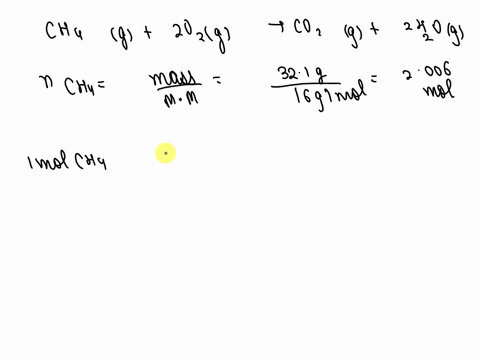 CH4 (g) + 2O2(g) → CO2 (g) + 2H2O(g)
n CH4 = mass/M.M = 32.1g/16g/mol = 2.006 mol
1mol CH4